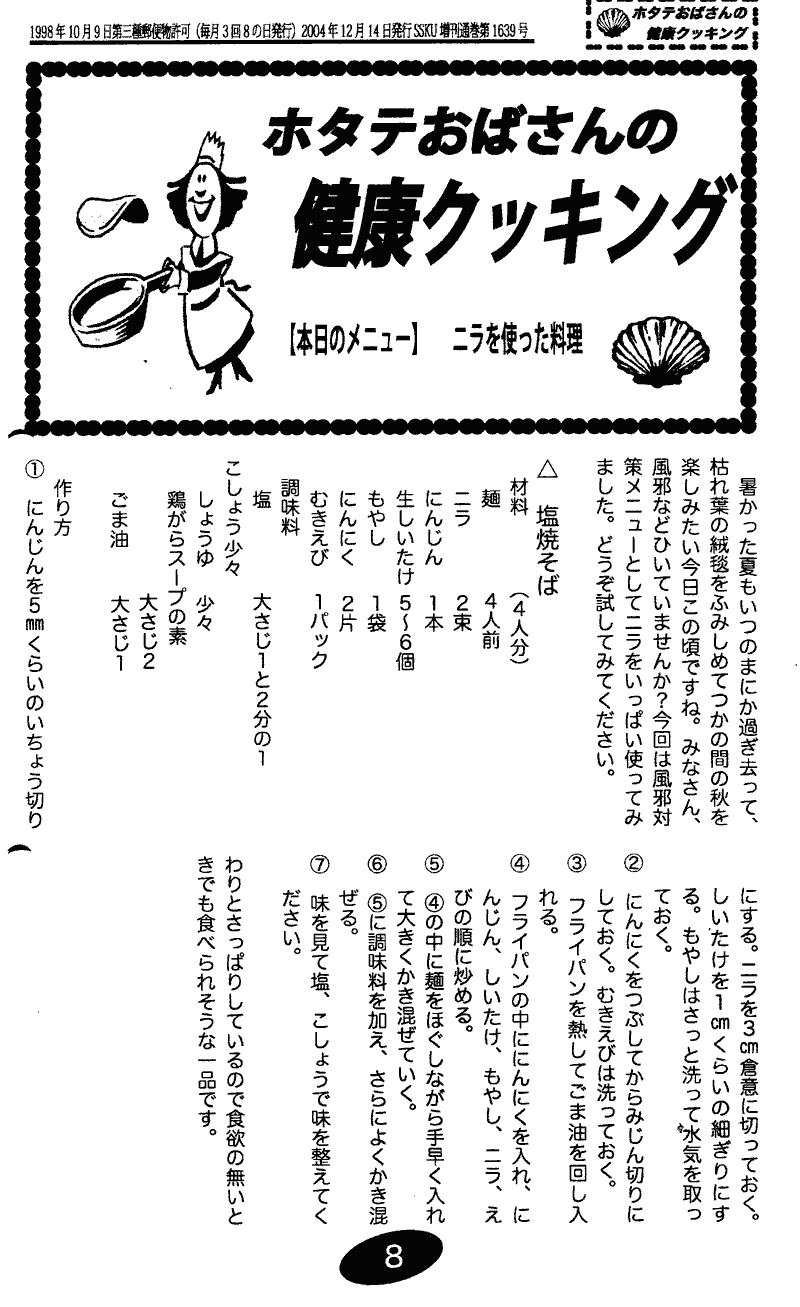 1998年10月9日第三種郵便物許可(毎月3回8の日発行)2004年12月14日発行SSKU増刊通巻第1639号
ホタテおばさんの
健康クッキング
ホタテおばさんの
健康クッキング
【本日のメニュー】 ニラを使った料理
暑かった夏もいつのまにか過ぎ去って、
枯れ葉の絨毯をふみしめてつかの間の秋を
楽しみたい今日この頃ですね。みなさん、
風邪などひいていませんか?今回は風邪対
策メニューとしてニラをいっぱい使ってみ
ました。どうぞ試してみてください。
△ 塩焼そば
材料 (4人分)
麺 4人前
ニラ 2束
にんじん 1本
生しいたけ 5~6個
もやし 1袋
にんにく 2片
むきえび 1パック
調味料
塩 大さじ1と2分の1
こしょう少々
しょうゆ 少々
鶏がらスープの素
大さじ2
ごま油 大さじ1
作り方
① にんじんを5㎜くらいのいちょう切り
にする。ニラを3㎝倉意に切っておく。
しいたけを1㎝くらいの細ぎりにす
る。もやしはさっと洗って水気を取っ
ておく。
② にんにくをつぶしてからみじん切りに
しておく。むきえびは洗っておく。
③ フライパンを熱してごま油を回し入
れる。
④ フライパンの中ににんにくを入れ、に
んじん、しいたけ、もやし、ニラ、え
びの順に炒める。
⑤ ④の中に麺をほぐしながら手早く入れ
て大きくかき混ぜていく。
⑥ ⑤に調味料を加え、さらによくかき混
ぜる。
⑦ 味を見て塩、こしょうで味を整えてく
ださい。
わりとさっぱりしているので食欲の無いと
きでも食べられそうな一品です。
8